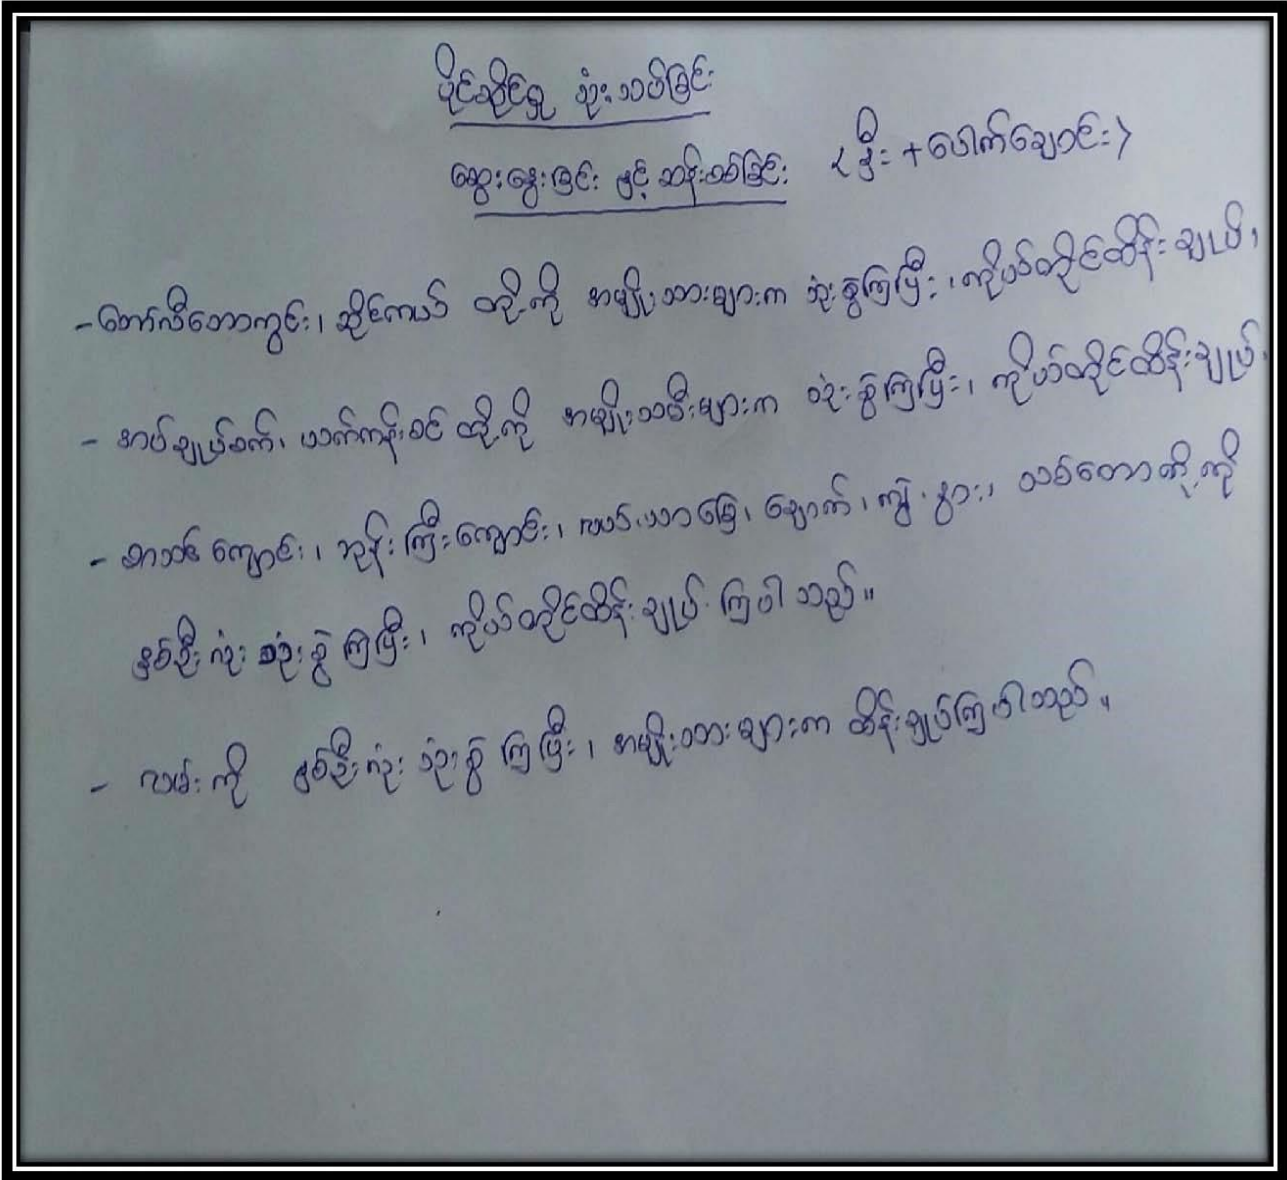 ပိုင်ဆိုင်မှု သုံးသပ်ခြင်း
ဆွေးနွေးခြင်း နှင့် ဆန်းစစ်ခြင်း
(နှီး + ပေါက်ချောင်း)
- ဘော်လီဘောကွင်း၊ ဆိုင်ကယ် တို့ကို အမျိုးသားများက သုံးစွဲကြပြီး၊ ကိုယ်တိုင်ထိန်းချုပ်၊
- အပ်ချုပ်စက်၊ ယက်ကန်းစင် တို့ကို အမျိုးသမီးများက သုံးစွဲကြပြီး၊ ကိုယ်တိုင်ထိန်းချုပ်၊
- စာသင်ကျောင်း၊ ဘုန်းကြီးကျောင်း၊ လယ်ယာမြေ၊ ချောက်၊ ကျွဲ၊ နွား၊ သစ်တောတို့ကို
နှစ်ဦးလုံး သုံးစွဲကြပြီး၊ ကိုယ်တိုင်ထိန်းချုပ်ကြပါသည်။
- လမ်းကို နှစ်ဦးလုံး သုံးစွဲကြပြီး၊ အမျိုးသားများက ထိန်းချုပ်ကြပါသည်။